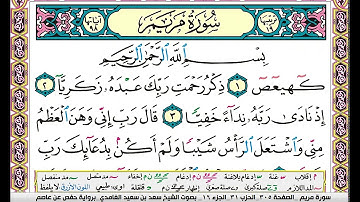 سُورَةُ مَرْيَمَ
بِسْمِ ٱللَّهِ ٱلرَّحْمَٰنِ ٱلرَّحِيمِ
كٓهيعٓصٓ ١ ذِكْرُ رَحْمَتِ رَبِّكَ عَبْدَهُۥ زَكَرِيَّآ ٢
إِذْ نَادَىٰ رَبَّهُۥ نِدَآءً خَفِيًّا ٣ قَالَ رَبِّ إِنِّى وَهَنَ ٱلْعَظْمُ
مِنِّى وَٱشْتَعَلَ ٱلرَّأْسُ شَيْبًا وَلَمْ أَكُنۢ بِدُعَآئِكَ رَبِّ
سورة مريم الصفحة ٣٠٥ الجزء ١٦ بصوت الشيخ سعد بن سعيد الغامدي برواية حفص عن عاصم